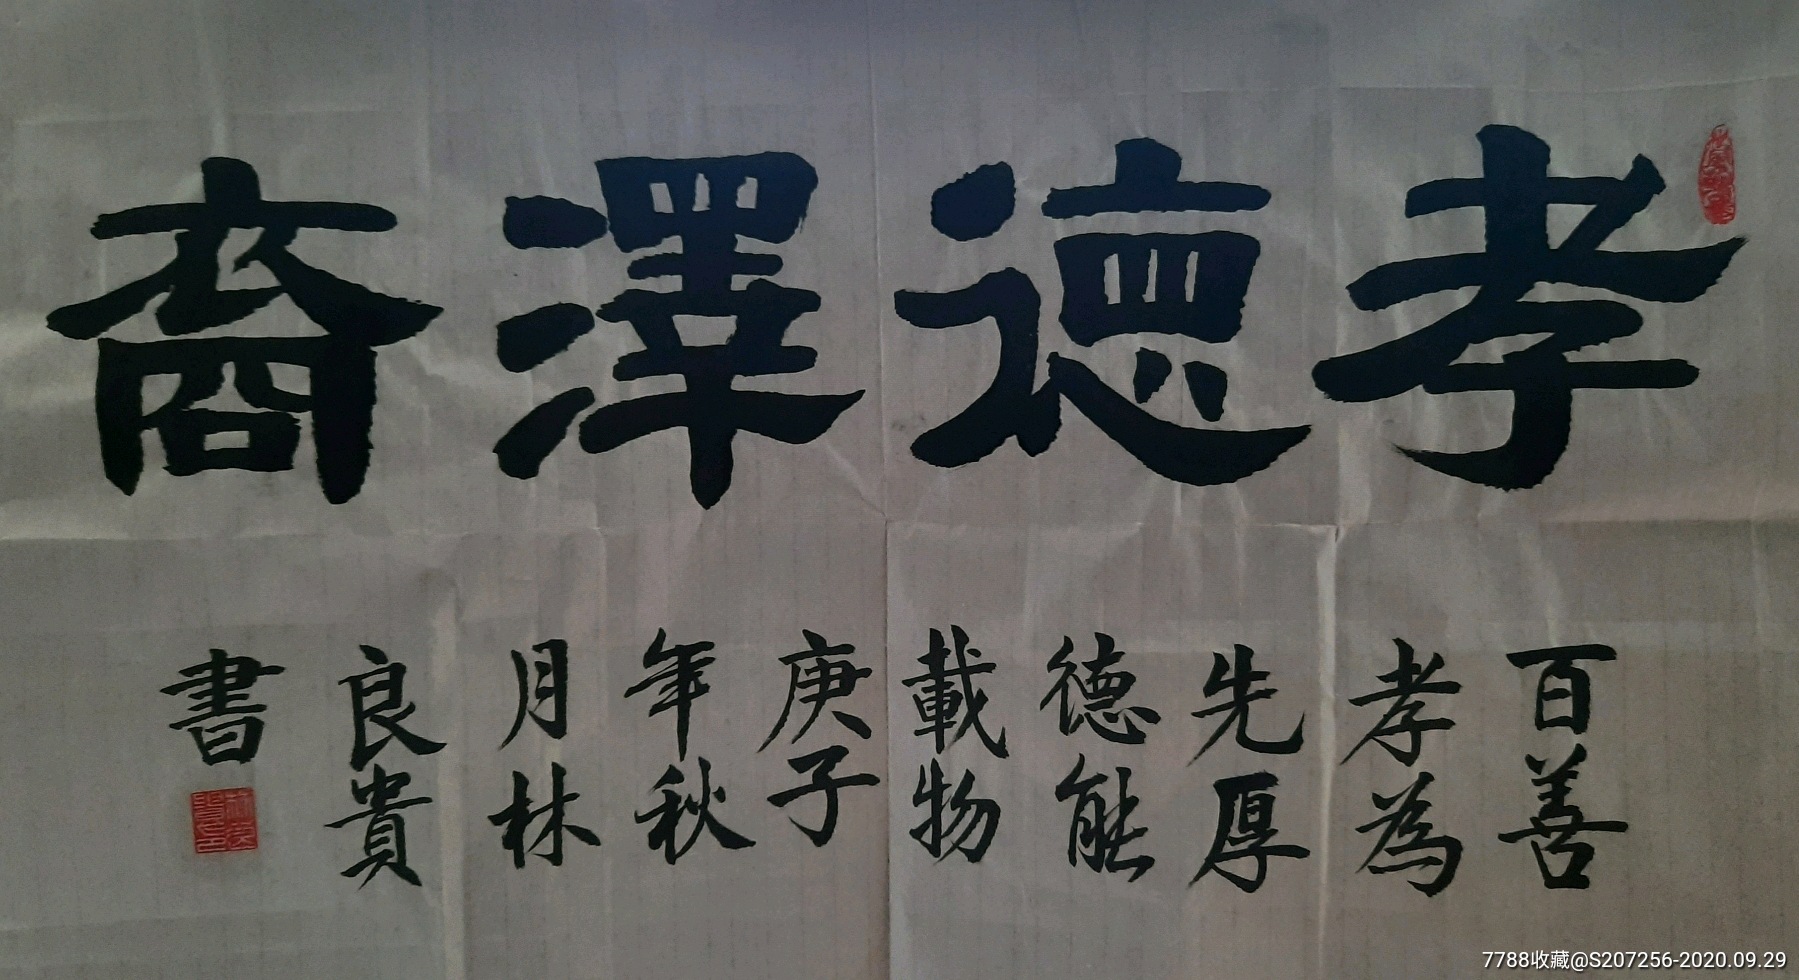 孝德澤裔
百善
孝為
先厚
德能
載物
庚子
年秋
月林
良貴
書
7788收藏@S207256-2020.09.29